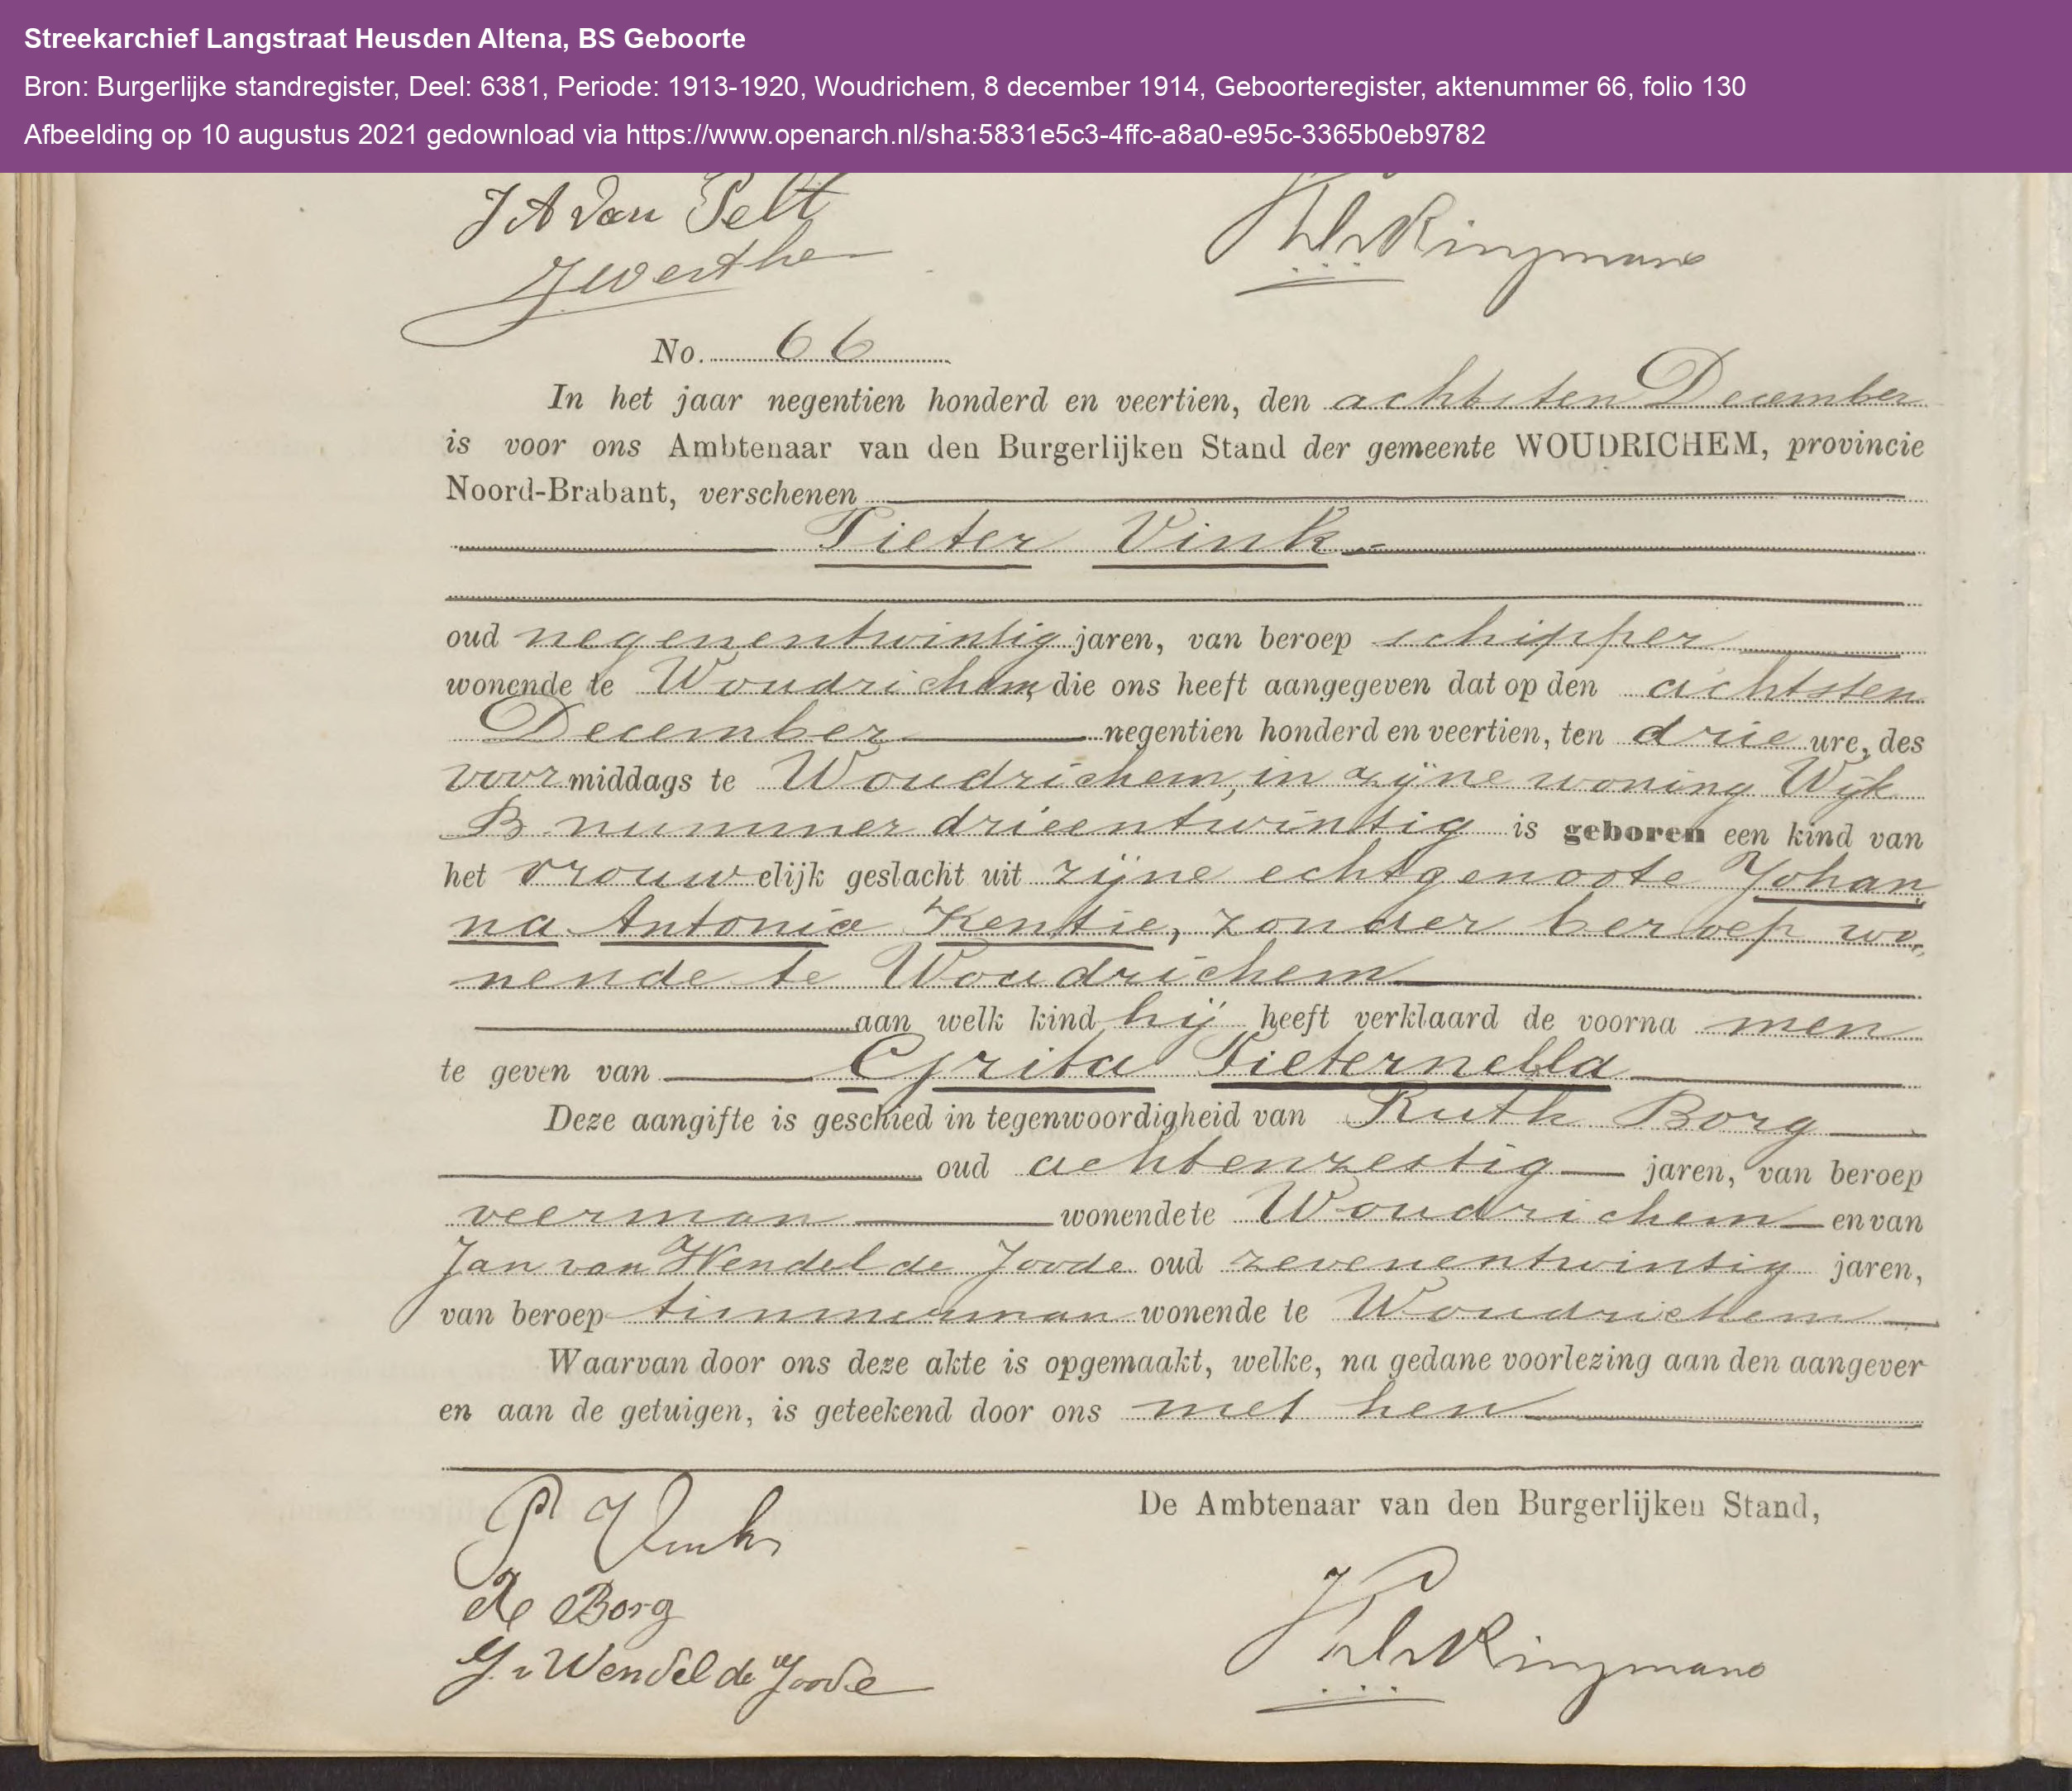 Streekarchief Langstraat Heusden Altena, BS Geboorte
Bron: Burgerlijke standregister, Deel: 6381, Periode: 1913-1920, Woudrichem, 8 december 1914, Geboorteregister, aktenummer 66, folio 130
Afbeelding op 10 augustus 2021 gedownload via https://www.openarch.nl/sha:5831e5c3-4ffc-a8a0-e95c-3365b0eb9782
J A van Pelt
No. 66
In het jaar negentien honderd en veertien, den achtsten December
is voor ons Ambtenaar van den Burgerlijken Stand der gemeente WOUDRICHEM, provincie
Noord-Brabant, verschenen
Pieter Vink
oud negenentwintig jaren, van beroep schipper
wonende te Woudrichem, die ons heeft aangegeven dat op den achtsten
December negentien honderd en veertien, ten drie ure, des
voormiddags te Woudrichem, in zijne woning Wijk
B nummer drieentwintig is geboren een kind van
het vrouwelijk geslacht uit zijne echtgenoote Johan
na Antonia Kentie, zonder beroep wo
nende te Woudrichem
aan welk kind hij heeft verklaard de voorna men
te geven van Grita Pieternella
Deze aangifte is geschied in tegenwoordigheid van Ruth Borg
oud achtenzestig jaren, van beroep
veerman wonende te Woudrichem en van
Jan van Wendel de Joode oud zevenentwintig jaren,
van beroep timmerman wonende te Woudrichem
Waarvan door ons deze akte is opgemaakt, welke, na gedane voorlezing aan den aangever
en aan de getuigen, is geteekend door ons met hen
De Ambtenaar van den Burgerlijken Stand,
P Vink
R Borg
J. v Wendel de Joode